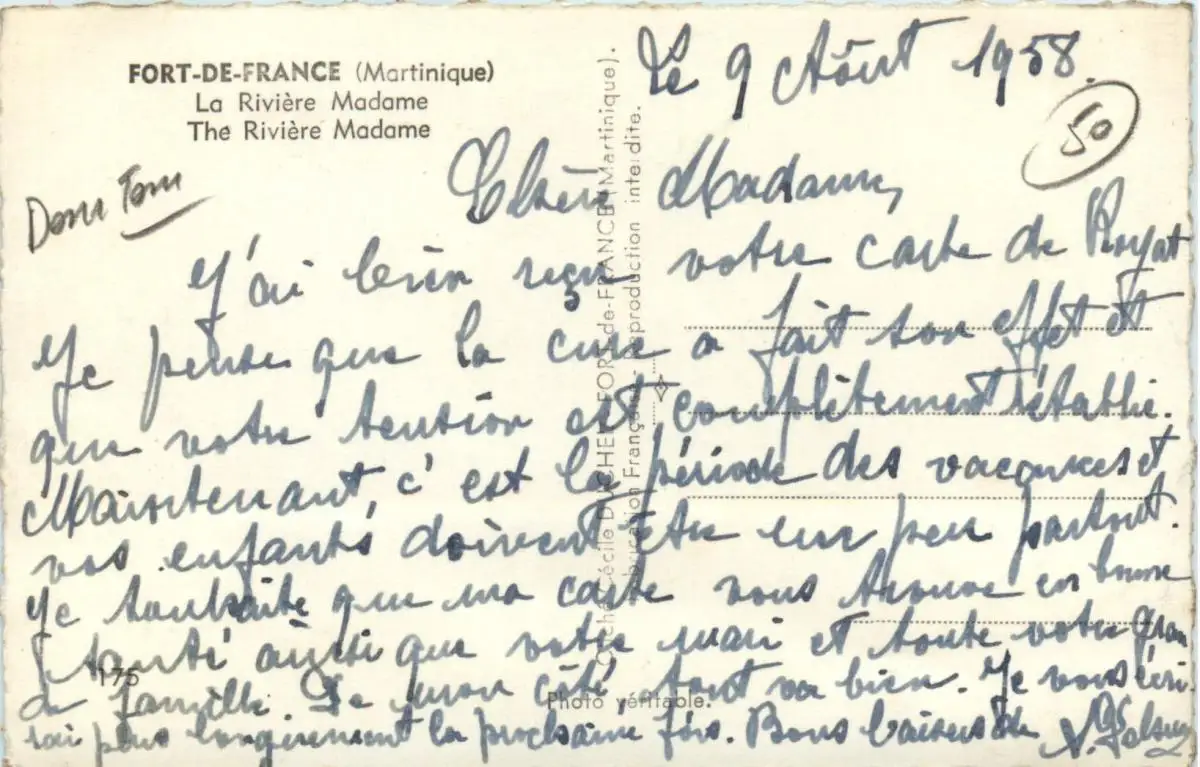 FORT-DE-FRANCE (Martinique)
La Rivière Madame
The Rivière Madame
Le 9 Août 1958.
50
Dom Tom
Chère Madame,
J'ai bien reçu votre carte de Royat
Je pense que la cure a fait son effet et
que votre tension est complètement rétablie.
Maintenant, c'est la période des vacances et
vos enfants doivent être un peu partout.
Je souhaite que ma carte vous trouve en bonne
santé ainsi que votre mari et toute votre gran
de famille. De mon côté, tout va bien. Je vous écri
rai plus longuement la prochaine fois. Bons baisers de
175
Photo véritable.
Reproduction interdite.